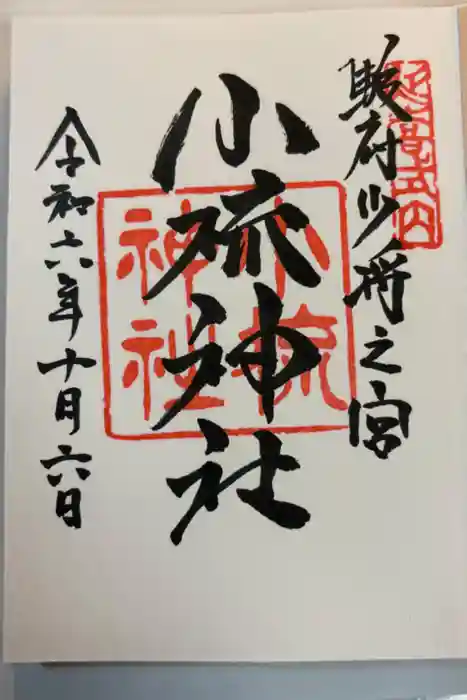 延喜式内
駿府少将之宮
小梳神社
小梳神社
令和六年十月六日